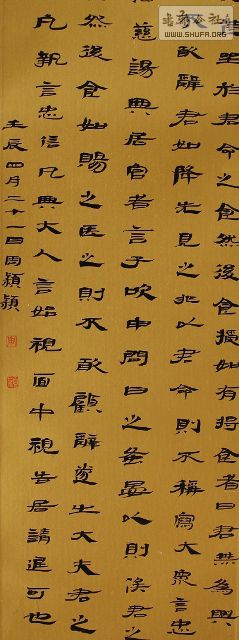 北朝公社
WWW.SHUFA.ORG
於君之食然後食授如有將食者曰君無為興
敢辭君如降先見之以君命則不稱寫大眾言忠
慈諹與居官者言子吹申問日之蚤晏以則俟君之
然後食如賜之則不敢顧辭遂出大夫君之
凡執言忠信凡與大人言始視面中視告居請退可也
壬辰四月二十一周穎穎